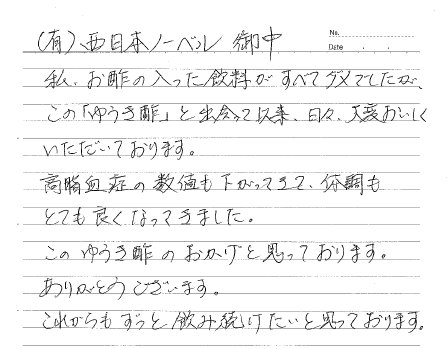 (有)西日本ノーベル 御中
No.
Date . .
私、お酢の入った飲料がすべてダメでしたが、
この「ゆうき酢」と出会って以来、日々、大変おいしく
いただいております。
高脂血症の数値も下がってきて、体調も
とても良くなってきました。
このゆうき酢のおかげと思っております。
ありがとうございます。
これからもずっと飲み続けたいと思っております。